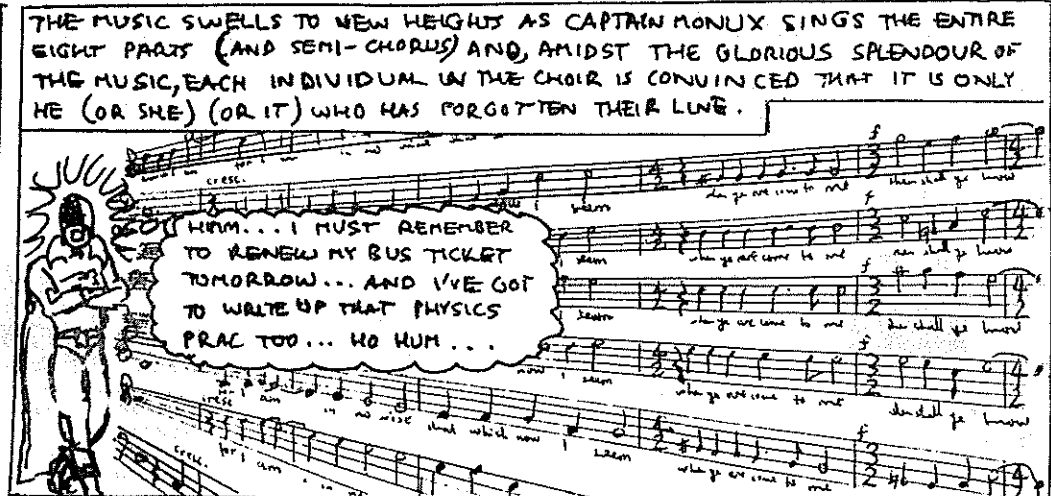 THE MUSIC SWELLS TO NEW HEIGHTS AS CAPTAIN MONUX SINGS THE ENTIRE
EIGHT PARTS (AND SEMI-CHORUS) AND, AMIDST THE GLORIOUS SPLENDOUR OF
THE MUSIC, EACH INDIVIDUAL IN THE CHOIR IS CONVINCED THAT IT IS ONLY
HE (OR SHE) (OR IT) WHO HAS FORGOTTEN THEIR LINE.
HMM... I MUST REMEMBER
TO RENEW MY BUS TICKET
TOMORROW... AND I'VE GOT
TO WRITE UP THAT PHYSICS
PRAC TOO... HO HUM...
cresc.
f
seem
when ye are come to me
then shall ye know
f
seem
when ye are come to me
then shall ye know
f
seem
when ye are come to me
then shall ye know
f
now I seem
when ye are come to me
then shall ye know
cresc.
for I am in no wise that which now I seem
when ye are come to me
f
then shall ye know
cresc.
for I am